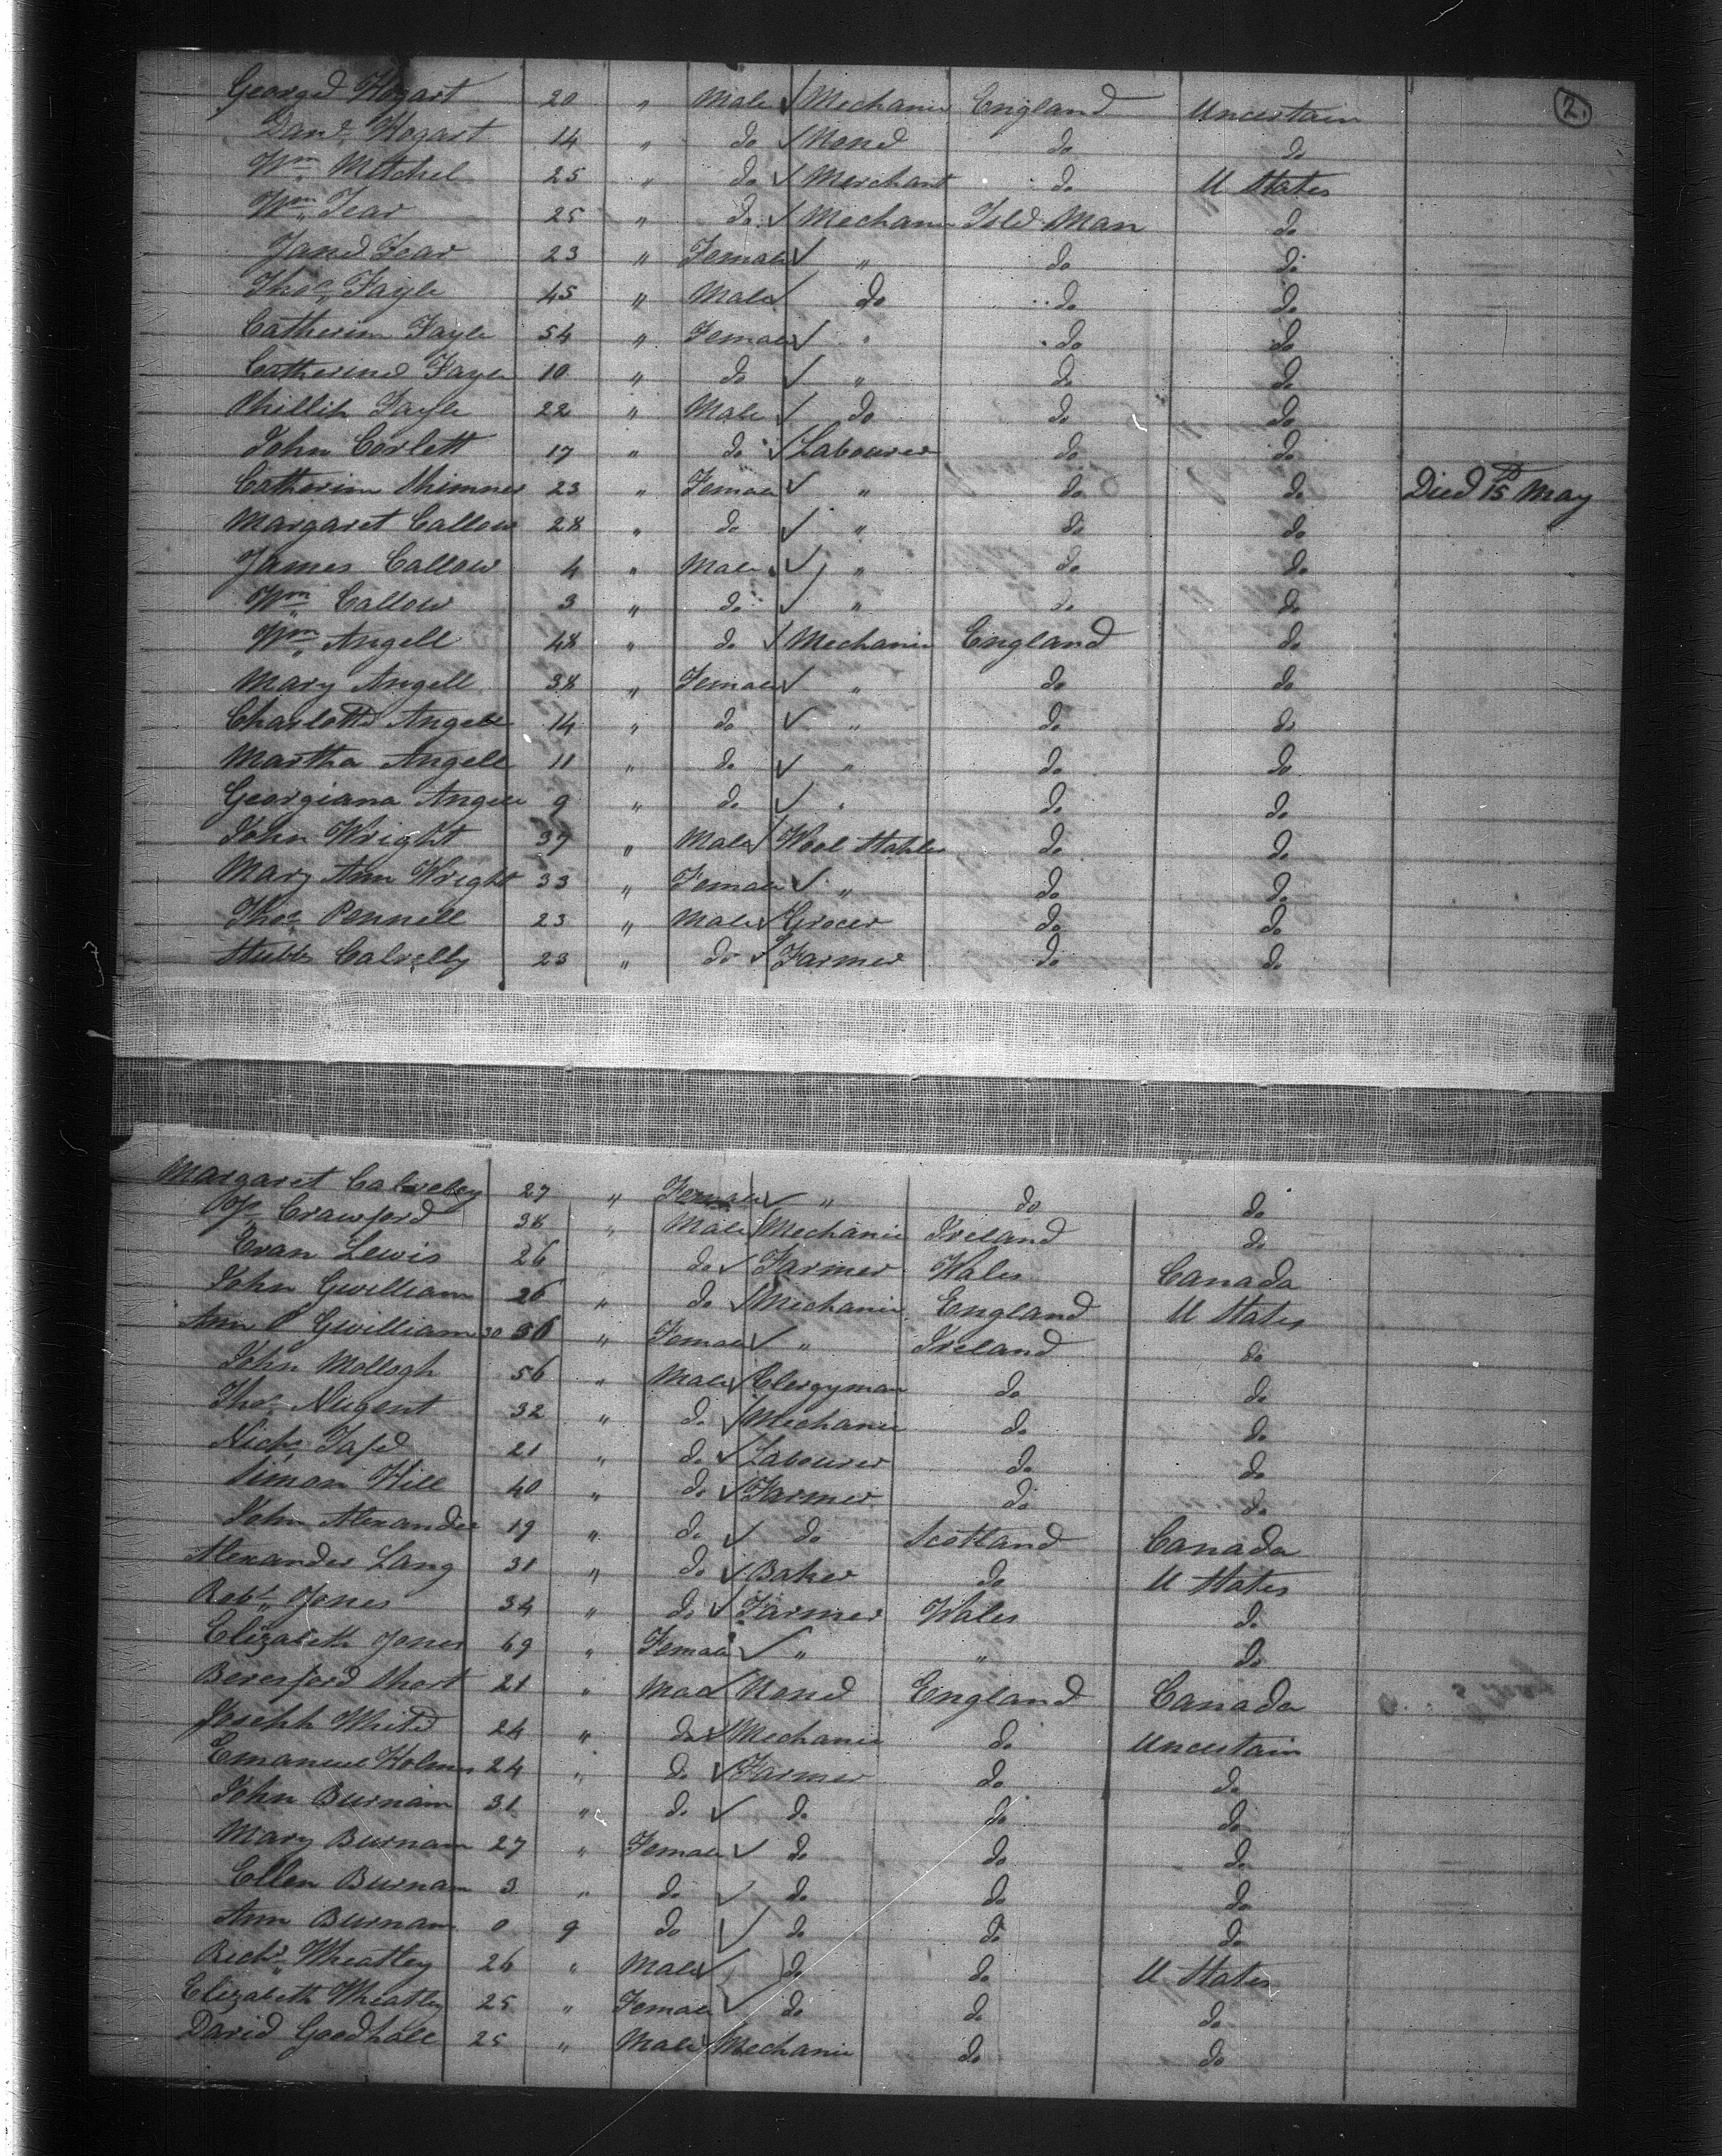 2.
George Hogart 20 " Male ✓ Mechanic England Uncertain
Danl Hogart 14 " do ✓ None do do
Wm Mitchel 25 " do ✓ Merchant do U States
Wm Fear 25 " do ✓ Mechanic Isle Man do
Jane Fear 23 " Female ✓ " do do
Thos Fayle 45 " Male ✓ do do do
Catherine Fayle 54 " Female ✓ " do do
Catherine Fayle 10 " do ✓ " do do
Phillip Fayle 22 " Male ✓ do do do
John Corlett 17 " do ✓ Labourer do do
Catherine 23 " Female ✓ " do do Died 15th May
Margaret Callow 28 " do ✓ " do do
James Callow 4 " Male ✓ " do do
Wm Callow 3 " do ✓ " do do
Wm Angell 48 " do ✓ Mechanic England do
Mary Angell 38 " Female ✓ " do do
Charlotte Angell 14 " do ✓ " do do
Martha Angell 11 " do ✓ " do do
Georgiana Angell 9 " do ✓ " do do
John Wright 37 " Male ✓ Wool Stapler do do
Mary Ann Wright 33 " Female ✓ " do do
Thos Pennell 23 " Male ✓ Grocer do do
Stubbs Calvelly 23 " do ✓ Farmer do do
Margaret Calveley 27 " Female ✓ " do do
Crawford 38 " Male ✓ Mechanic Ireland do
Evan Lewis 26 " do ✓ Farmer Wales Canada
John Gwilliam 26 " do ✓ Mechanic England U States
Ann P Gwilliam 30 " Female ✓ " Ireland do
John Mollogh 56 " Male ✓ Clergyman do do
Thos Nugent 32 " do ✓ Mechanic do do
Nichs 21 " do ✓ Labourer do do
Simon Hill 40 " do ✓ Farmer do do
John Alexander 19 " do ✓ do Scotland Canada
Alexander Lang 31 " do ✓ Baker do U States
Robt Jones 34 " do ✓ Farmer Wales do
Elizabeth Jones 69 " Female ✓ " " do
Beresford Short 21 " Male ✓ None England Canada
Joseph White 24 " do ✓ Mechanic do Uncertain
Emanuel Holmes 24 " do ✓ Farmer do do
John Burnam 31 " do ✓ do do do
Mary Burnam 27 " Female ✓ do do do
Ellen Burnam 3 " do ✓ do do do
Ann Burnam 0 9 do ✓ do do do
Richd Wheatley 26 " Male ✓ do do U States
Elizabeth Wheatley 25 " Female ✓ do do do
David Goodhall 25 " Male ✓ Mechanic do do